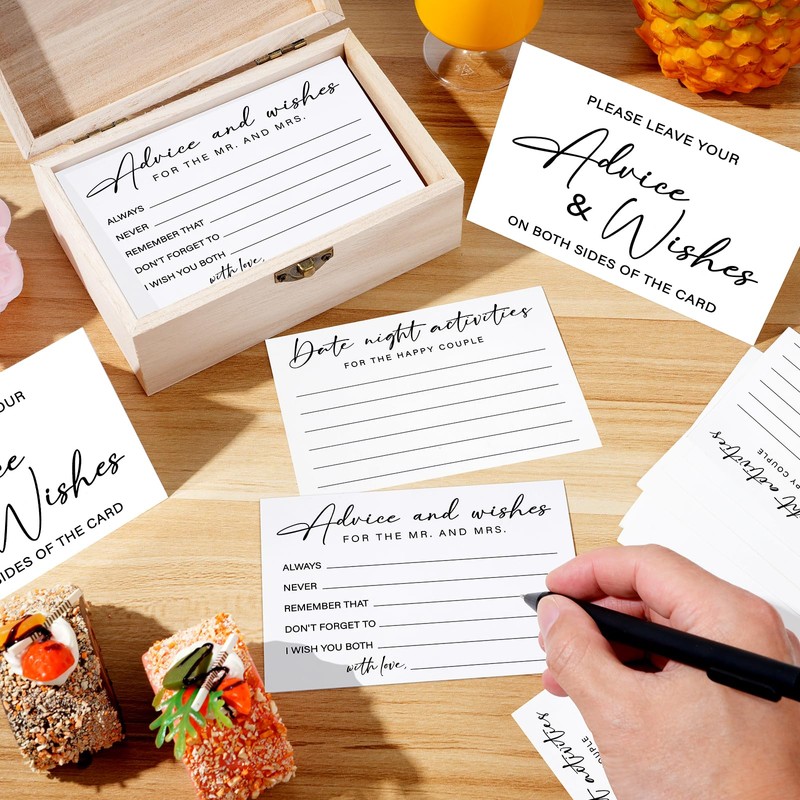 Advice and wishes
FOR THE MR. AND MRS.
ALWAYS
NEVER
REMEMBER THAT
DON'T FORGET TO
I WISH YOU BOTH
with love,
PLEASE LEAVE YOUR
Advice
& Wishes
ON BOTH SIDES OF THE CARD
Date night activities
FOR THE HAPPY COUPLE
OUR
Wishes
SIDES OF THE CARD
Advice and wishes
FOR THE MR. AND MRS.
ALWAYS
NEVER
REMEMBER THAT
DON'T FORGET TO
I WISH YOU BOTH
with love,
activities
COUPLE
activities